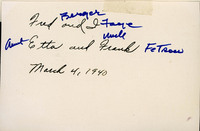 Fred Berger and I Faye
Aunt Etta and Uncle Frank FeTrow
March 4, 1940